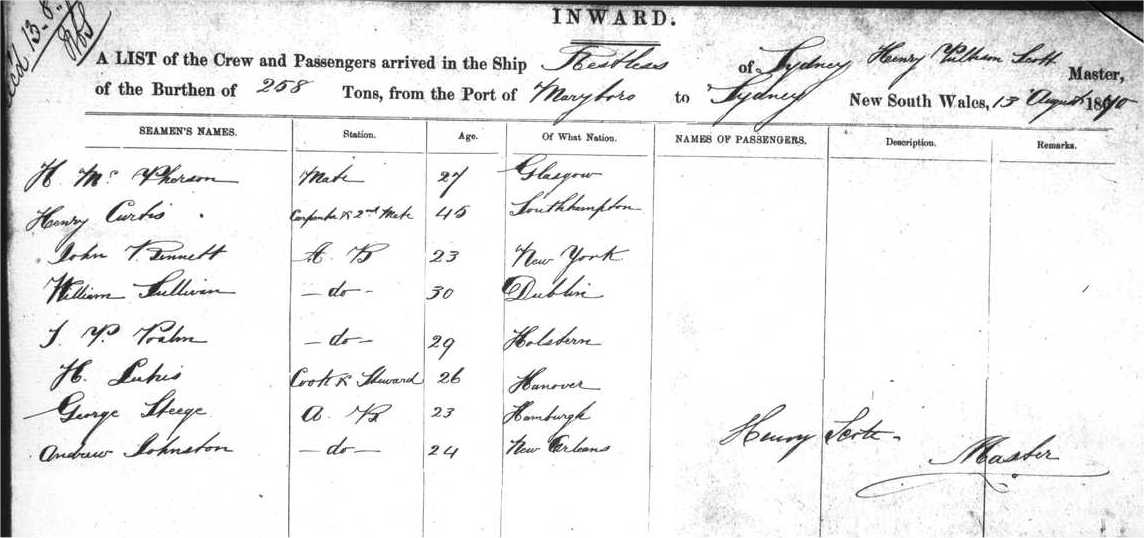 Rec'd 13.8.
INWARD.
A LIST of the Crew and Passengers arrived in the Ship Restless of Sydney Henry Pulham Scott Master,
of the Burthen of 258 Tons, from the Port of Maryboro to Sydney New South Wales, 13 August 1870
SEAMEN'S NAMES. Station. Age. Of What Nation. NAMES OF PASSENGERS. Description. Remarks.
H. Mc Pherson Mate 27 Glasgow
Henry Curtis Carpenter & 2nd Mate 45 Southhampton
John Bennett A. B 23 New York
William Sullivan - do - 30 Dublin
J. P. - do - 29 Holstern
H. Lukis Cook & Steward 26 Hanover
George Steege A. B 23 Hamburgh
Andrew Johnston - do - 24 New Orleans
Henry Scott
Master